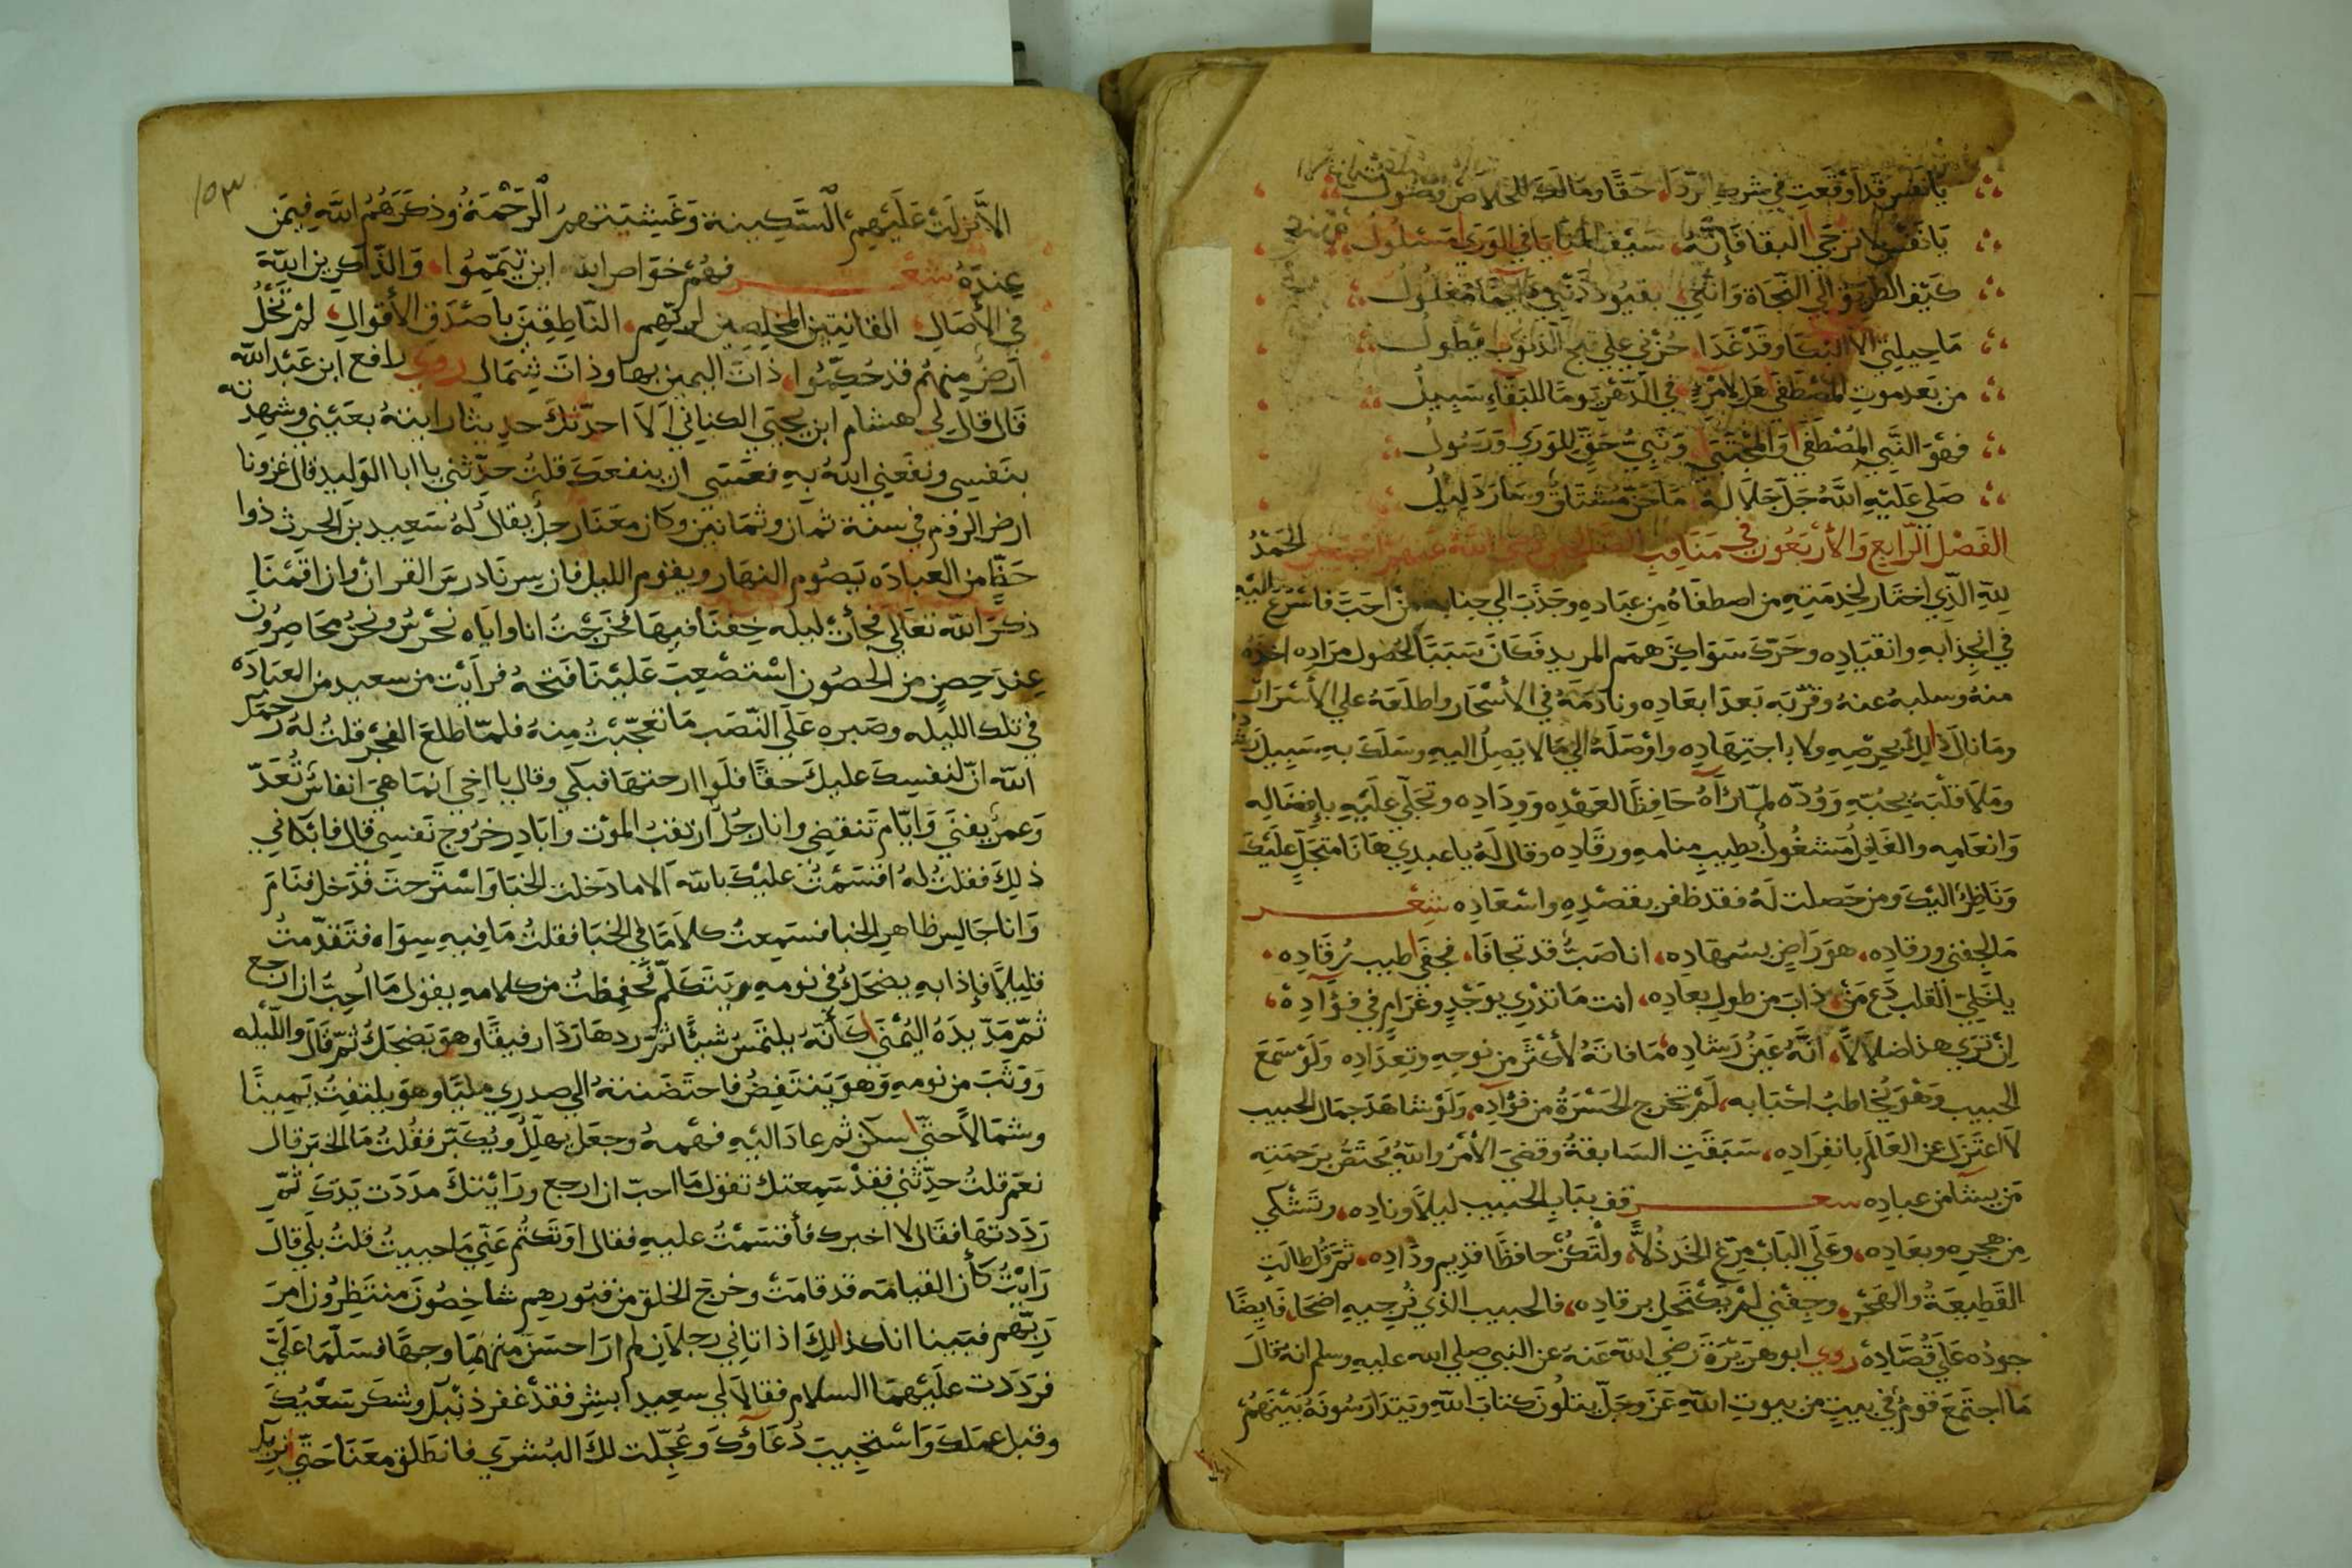 يا نفس قد أوقعت في شرك الردا، حقا وما لك للخلاص وصول
يا نفس لا ترجي البقا فإنه، سيف المنايا في الورى مسلول
كيف الطريق الي النجاة وانني، بقيود ذنبي دايما مغلول
ما حيلتي الا البكا وقد غدا، حزني علي قبح الذنوب يطول
من بعد موت المصطفى هل لامرء، في الدهر يوما للبقاء سبيل
فهو النبي المصطفى والمجتبى، ونبي حق للورى ورسول
صلى عليه الله جل جلاله، ما حن مشتاق وسار دليل
الفصل الرابع والأربعون في مناقب الصالحين رضي الله عنهم اجمعين الحمد
لله الذي اختار لخدمته من اصطفاه من عباده وجذب الي جنابه من احب فاسرع اليه
في انجذابه وانقياده وحرك سواكن همم المريد فكان سببا لحصول مراده اخذه
منه وسلبه عنه وقربه بعد ابعاده ونادمه في الأسحار واطلعه علي الأسرار
وما نال ذلك بحرصه ولا باجتهاده واوصله الي ما لا يصل اليه وسلك به سبيل
وملا قلبه بحبه ووده لما رآه حافظا لعهده ووداده وتجلي عليه بإفضاله
وانعامه والغافل مشغول بطيب منامه ورقاده وقال له يا عبدي ها نا متجل عليك
وناظر اليك ومن حصلت له فقد ظفر بقصده واسعاده شعر
ما لجفني ورقاده، هو راض بسهاده، انا صب قد تجافا، فجفى طيب رقاده،
يا خلي القلب دع من، ذاب من طول بعاده، انت ما تدري بوجد وغرام في فؤاده،
ان تري هذا ضلالا، انه عين رشاده، ما فاته لأكثر من نوحه وتعداده ولو سمع
الحبيب وهو يخاطب احبابه، لم تخرج الحسرة من فؤاده، ولو شاهد جمال الحبيب
لاعتزل عن العالم بانفراده، سبقت السابقة وقضي الأمر والله يختص برحمته
من يشا من عباده شعر قف بباب الحبيب ليلا وناده، وتشكي
من هجره وبعاده، وعلي الباب مرغ الخد ذلا، ولتكن حافظا قديم وداده، ثم قل طالت
القطيعة والهجر، وجفني لم يكتحل برقاده، فالحبيب الذي ترجيه اضحا، فايضا
جوده علي قصاده روي ابو هريرة رضي الله عنه عن النبي صلي الله عليه وسلم انه قال
ما اجتمع قوم في بيت من بيوت الله عز وجل يتلون كتاب الله ويتدارسونه بينهم
١٥٣
الا نزلت عليهم السكينة وغشيتهم الرحمة وذكرهم الله فيمن
عنده شعر فهم خواص الله اين تيمموا، والذاكرين الله
في الأصال، القانتين المخلصين لربهم، الناطقين باصدق الأقوال، لم تخل
ارض منهم قد حكموا، ذات اليمين بها وذات شمال روي رافع ابن عبد الله
قال قال لي هشام ابن يحيي الكناني الا احدثك حديثا رايته بعيني وشهدته
بنفسي ونفعني الله به فعسى ان ينفعك قلت حدثني يا ابا الوليد قال غزونا
ارض الروم في سنة ثمان وثمانين وكان معنا رجل يقال له سعيد بن الحرث ذوا
حظ من العبادة يصوم النهار ويقوم الليل فان سرنا درس القران وان اقمنا
ذكر الله تعالي فجأت ليله خفنا فيها فخرجت انا واياه نحرس ونحن محاصرون
عند حصن من الحصون استصعب علينا فتحه فرايت من سعيد من العبادة
في تلك الليله وصبره علي النصب ما تعجبت منه فلما طلع الفجر قلت له رحمك
الله ان لنفسك عليك حقا فلو ارحتها فبكي وقال يا اخي انما هي انفاس تعد
وعمر يفني وايام تنقضي وانا رجل ارتقب الموت وابادر خروج نفسي قال فابكاني
ذلك فقلت له اقسمت عليك بالله الا ما دخلت الخبا واسترحت فدخل فنام
وانا جالس ظاهر الخبا فسمعت كلاما في الخبا فقلت ما فيه سواه فتقدمت
قليلا فإذا به يضحك في نومه ويتكلم فحفظت من كلامه يقول ما احب ان ارجع
ثم مد يده اليمنى كأنه يلتمس شيئا ثم ردها ردا رفيقا وهو يضحك ثم قال والليله
ووثب من نومه وهو ينتفض فاحتضنته الي صدري مليا وهو يلتفت يمينا
وشمالا حتى سكن ثم عاد اليه فهمه وجعل يهلل ويكبر فقلت ما الخبر قال
نعم قلت حدثني فقد سمعتك تقول ما احب ان ارجع ورايتك مددت يدك ثم
رددتها فقال لا اخبرك فأقسمت عليه فقال اوتكتم عني ما حييت قلت بلي قال
رايت كأن القيامه قد قامت وخرج الخلق من قبورهم شاخصون منتظرون امر
ربهم فبينا انا كذلك اذ اتاني رجلان لم ار احسن منهما وجها فسلما علي
فرددت عليهما السلام فقالا لي سعيد ابشر فقد غفر ذنبك وشكر سعيك
وقبل عملك واستجيب دعاؤك وعجلت لك البشري فانطلق معنا حتى نريك